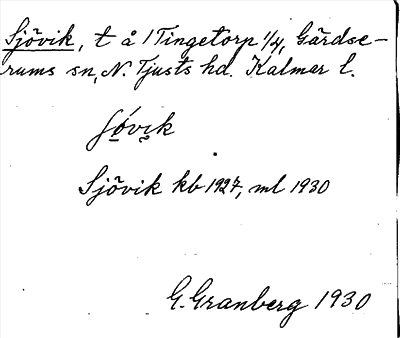 Sjövik, t å 1 Tingetorp 1/4, Gärdse-
rums sn, N. Tjusts hd. Kalmar l.
Sjövik kb 1927, ml 1930
G. Granberg 1930